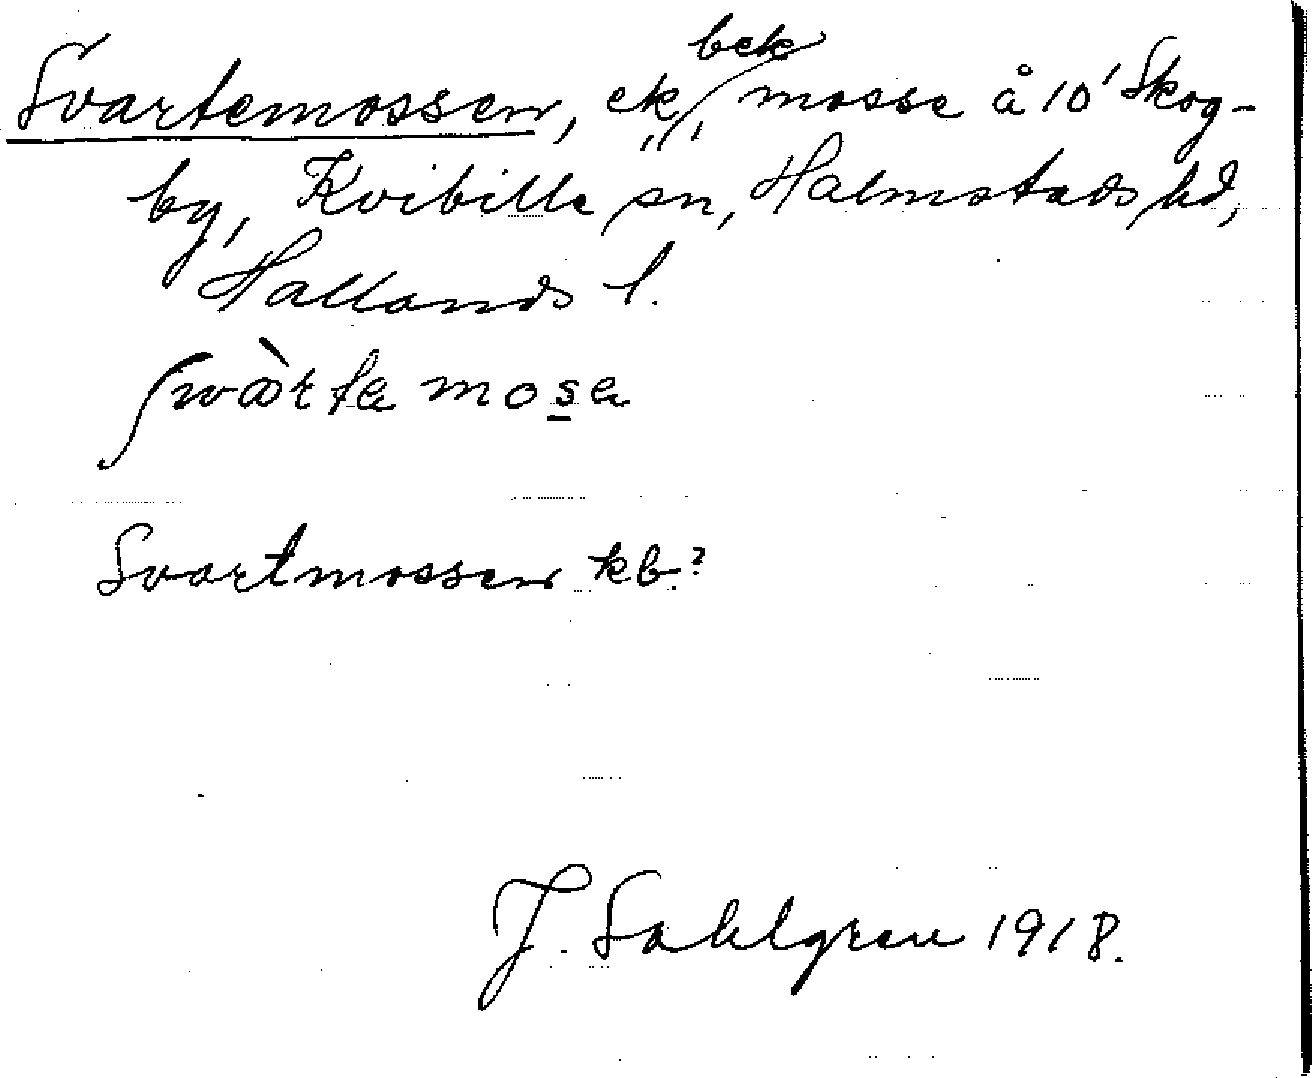 Svartemossen, ek, bek, mosse å 10' Skog-
by, Kvibille sn, Halmstads hd,
Hallands l.
mosa
Svartmossen kb?
J. Sahlgren 1918.